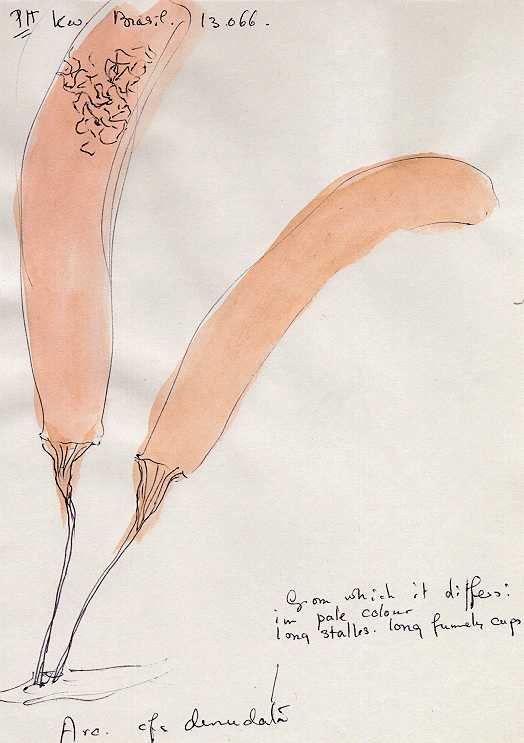 PH Kew. Brasil. 13.066.
from which it differs:
in pale colour
long stalks. long funnely cups
Arc. cfs denudata